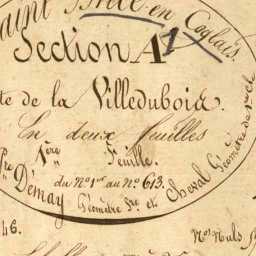 Saint Brice en Coglais.
Section A1
te de la Villeduboix.
En deux feuilles
1ère Feuille.
du No 1er au No 613.
Demay Géomètre
et Cheval Géomètre de 1re Cle
46.
Nos Nuls